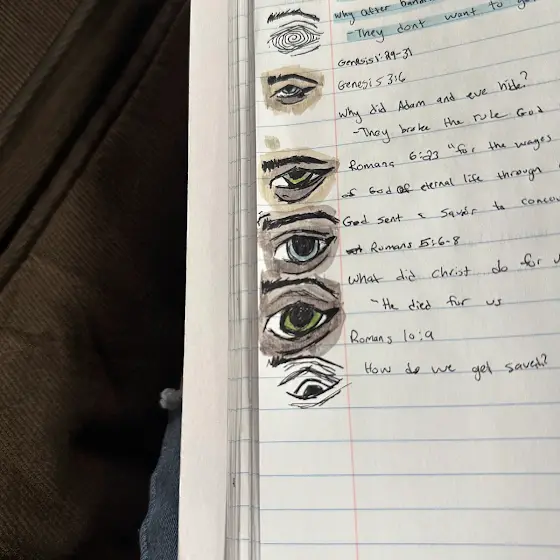 why after
-They dont want to
Genesis 1:29-31
Genesis 3:6
why did Adam and eve hide?
-They broke the rule God
Romans 6:23 "for the wages
of God of eternal life through
God sent a Savior to
Romans 5:6-8
what did christ do for
-He died for us
Romans 10:9
How do we get saved?